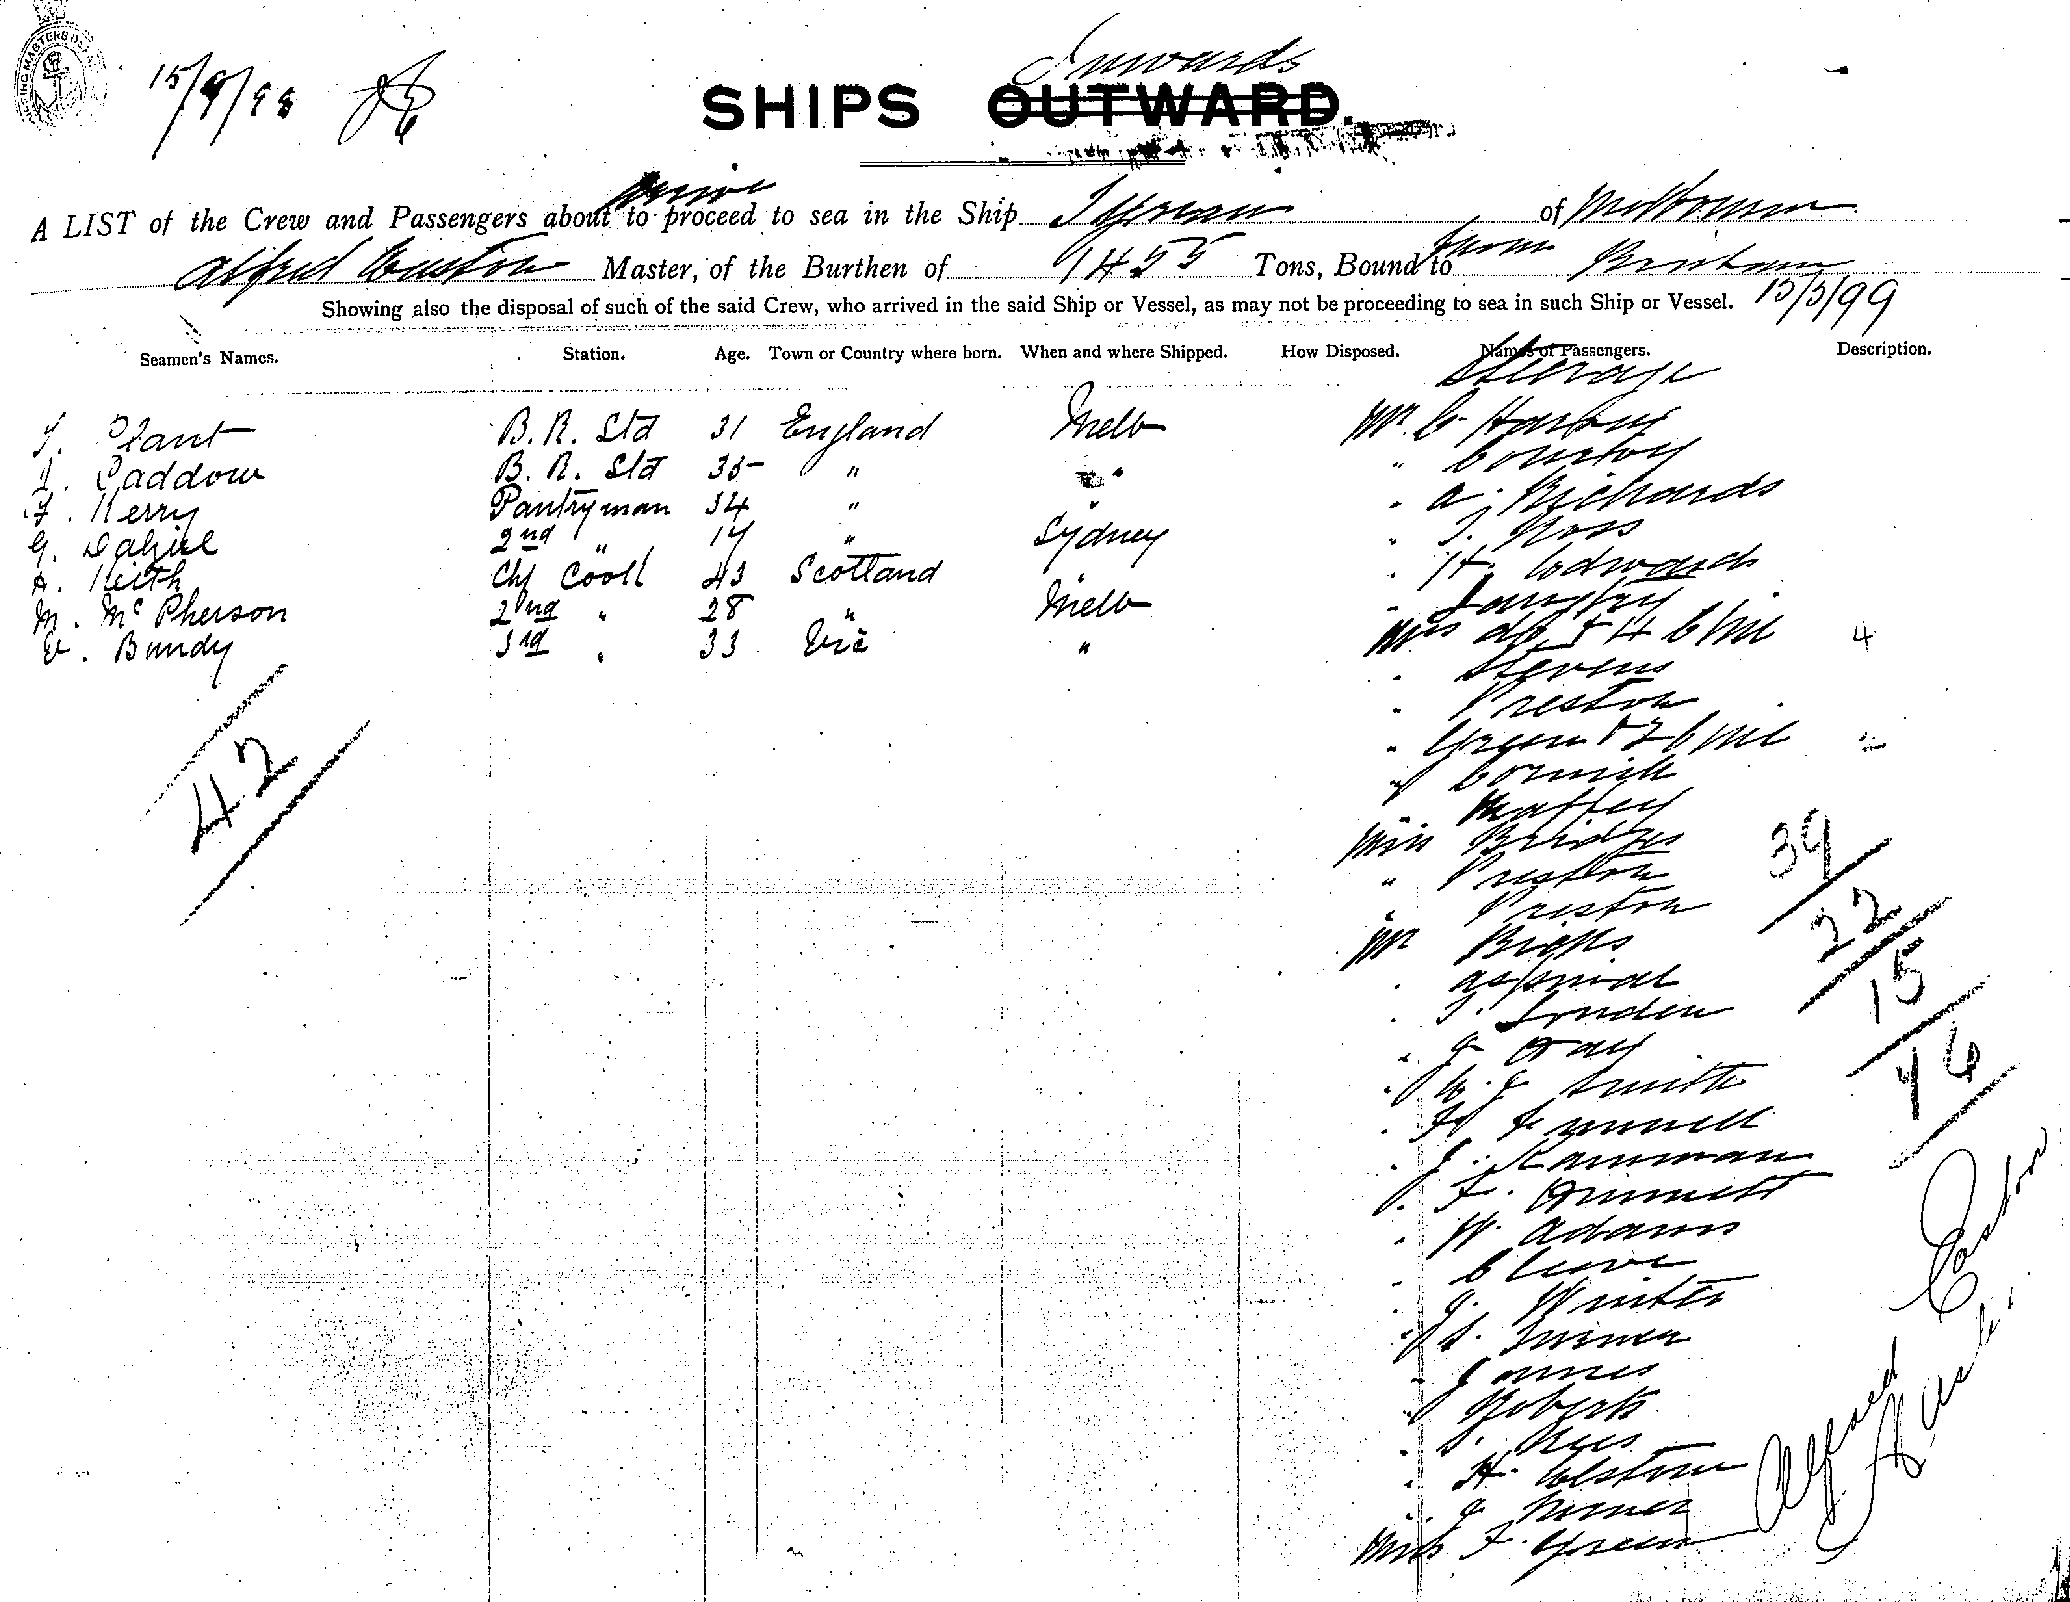 15/9/98
Inwards
SHIPS OUTWARD.
arrive
A LIST of the Crew and Passengers about to proceed to sea in the Ship Tyrian of Melbourne
from
Alfred Easton Master, of the Burthen of 1455 Tons, Bound to Brisbane
Showing also the disposal of such of the said Crew, who arrived in the said Ship or Vessel, as may not be proceeding to sea in such Ship or Vessel. 15/5/99
Seamen's Names. Station. Age. Town or Country where born. When and where Shipped. How Disposed. Names of Passengers. Description.
Steerage
Plant B.R. Std 31 England Melb Mr C
Caddow B.R. Std 35 " "
Kerry Pantryman 34 " " " A. Richards
G. Dalziel 2nd " 17 " Sydney " Ross
A. Keith Chf Cook 43 Scotland " H. Edwards
M. McPherson 2nd " 28 " Melb " Langtry
Bundy 3rd " 33 Vic " Mrs & 4 Chil 4
" Stevens
" Preston
" Green & 2 Chil 2
42
" Cornish
" Maffey
Miss Bridges
39
" Preston
" Preston
22
Mr Biggs
" Aspinal
15
" Louden
" J Day
46
" W. J Smith
"
" J.
" F. Grimmett
" W. Adams
" Cleave
" J. Winter
" S. Turner
" James
" Roberts
" Rees
" H. Elstone
" J Turner
Miss F. Green
Alfred Easton